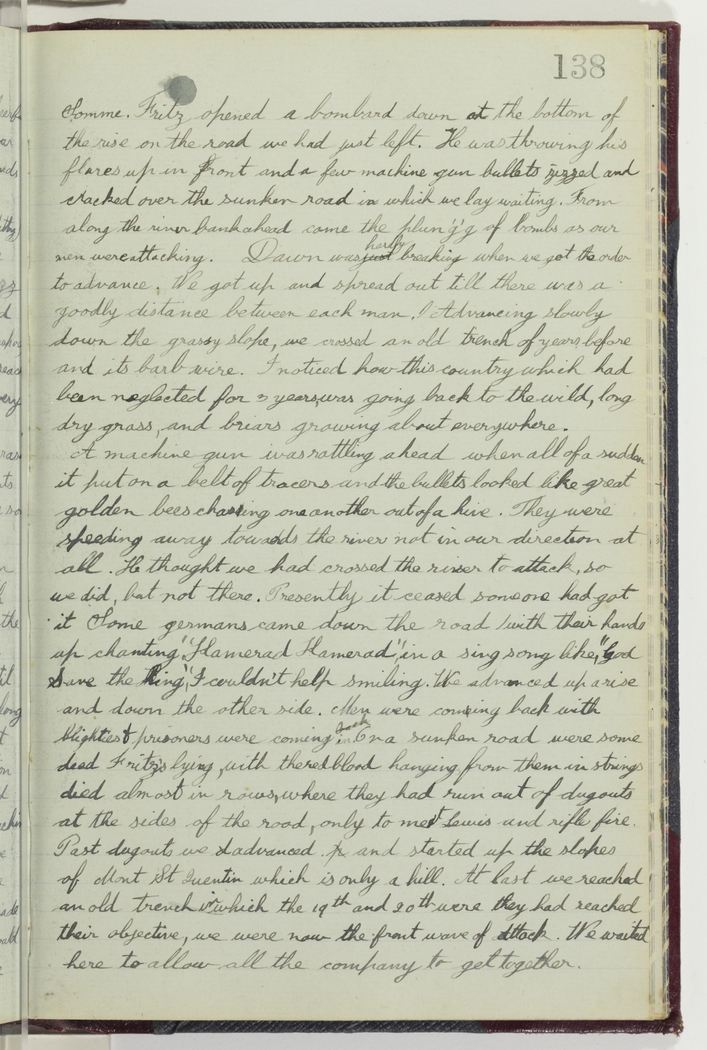 138
Somme. Fritz opened a bombard down at the bottom of
the rise on the road we had just left. He was throwing his
flares up in front and a few machine gun bullets zizzed and
cracked over the sunken road in which we lay waiting. From
along the river bank ahead came the of bombs as our
men were attacking. Dawn was hardly breaking when we got the order
to advance. We got up and spread out till there was a
goodly distance between each man. Advancing slowly
down the grassy slope, we crossed an old trench of years before
and its barb wire. I noticed how this country which had
been neglected for 3 years, was going back to the wild, long
dry grass, and briars growing about everywhere.
A machine gun was rattling ahead when all of a sudden
it put on a belt of tracers and the bullets looked like great
golden bees chasing one another out of a hive. They were
speeding away towards the river not in our direction at
all. He thought we had crossed the river to attack, so
we did, but not there. Presently it ceased someone had got
it Some germans came down the road with their hands
up chanting "Kamerad Kamerad", in a sing song like, "God
Save the King", I couldn't help smiling. We advanced up a rise
and down the other side. Men were coming back with
blighties & prisoners were coming back in. On a sunken road were some
dead Fritzs lying, with the red blood hanging from them in strings
died almost in rows, where they had run out of dugouts
at the sides of the road, only to meet Lewis and rifle fire.
Past dugouts we advanced and started up the slopes
of Mont St Quentin which is only a hill. At last we reached
an old trench in which the 19th and 20th were they had reached
their objective, we were now the front wave of attack. We waited
here to allow all the company to get together.